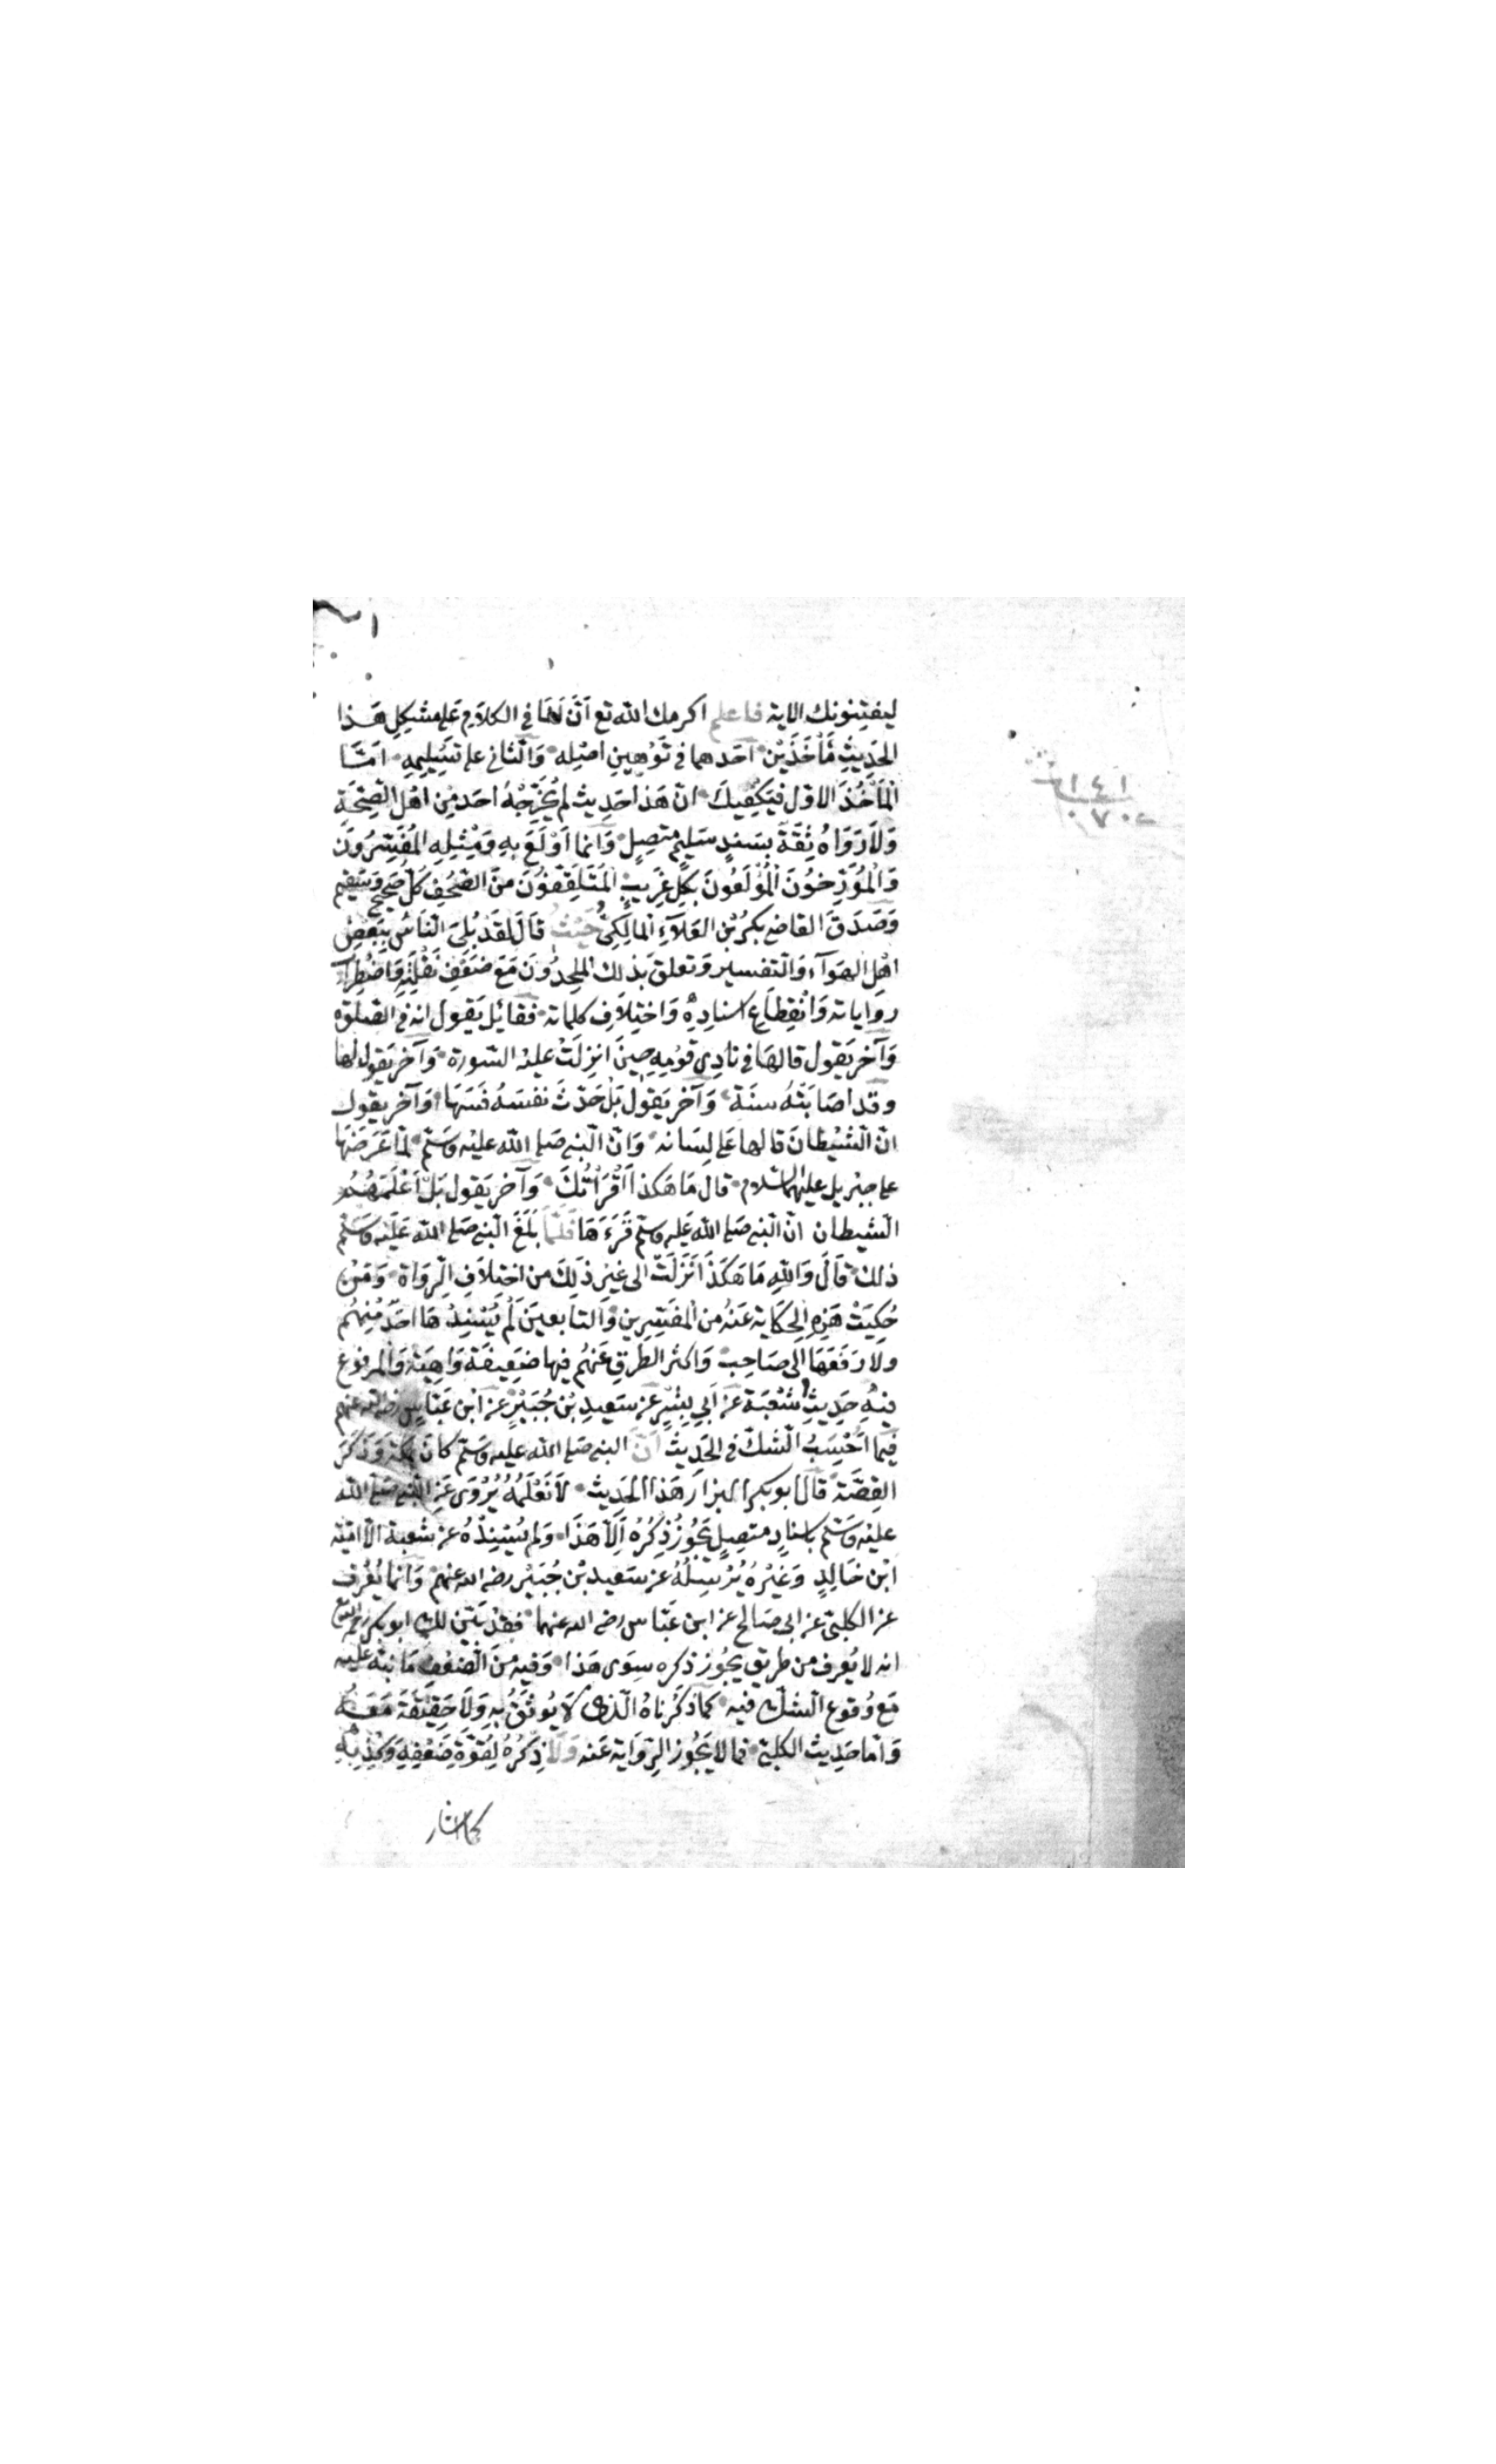 ليفتنونك الاية فاعلم اكرمك الله تع اَنَّ لَنَا في الكلاَمِ عَلى مشكِلِ هَذا
الحَدِيثِ مَأْخَذَيْن اَحَدهما في تَوْهِينِ اصْلِه وَالثاني على تسَليمِهِ امَّا
الْمَأْخَذ الاوّل فيَكفِيكَ انّ هَذا حَدِيث لم يُخَرِّجْهُ احَد مِن اهْل الصِّحَّةِ
وَلاَ رَوَاهُ ثِقَةٌ بِسَندٍ سَليمٍ متصِلٍ وَانما اَوْلَعَ بِهِ وَمِثلِهِ المُفَسِّرُونَ
وَالْمُوَرِّخوُنَ الْمُوْلَعُونَ بكلِ غَرِيبٍ المُتَلَقِّفوُنَ منَ الصّحُفِ كلّ صَحيحٍ وَسَقيم
وَصَدَقَ القاضي بكرُ بْن العَلاَءِ المالِكِيّ حَيْثُ قالَ لقَد بُلىَ النّاسُ بِبَعْضِ
اهْلِ الهوَآء وَالتفسير وَتعلق بَذلك الملحِدُونَ مَعَ ضَعْفِ نَقْلَتِهِ وَاضْطِرَابِ
روَاياته وَانْقِطَاعِ اسنادِهِ وَاختِلاَفِ كلماته فقَائِل يَقول انه في الصّلوة
وَآخر يَقول قالهَا في نادِي قوْمِهِ حِينَ انزِلَتْ عليْه السّورة وَآخر يَقول لها
وقد اصَابَتْهُ سِنَة وَآخر يَقول بَلْ حَدّثَ نفسَهُ فسَهَا وَآخر يقول
انّ الشيْطانَ قالها عَلى لِسَانه وَانّ النبي صَلى الله عليْه وسَلم لمّا عَرَضهَا
على جبريل عليهما السلام قال مَا هكذا اَقْرَأتُكَ وَآخر يَقول بَلْ اَعْلَمَهُمُ
الشيطان انّ النبي صَلى الله عَليه وسَلم قَرَءَهَا فَلمّا بَلَغَ النبي صَلى الله عَليْه وسَلم
ذلك قالَ وَاللهِ مَا هَكَذَا نَزَلَتْ الى غيْر ذَلِكَ من اختِلاَفِ الرّوَاة وَمَنْ
حُكِيَتْ هَذِهِ الحِكَاية عَنْهُ من المفَسِّرِين وَالتابعينَ لَمْ يُسْنِدْهَا احَدٌ مِنْهُم
ولاَ رَفَعَهَا الى صَاحِب وَاكثر الطُّرقِ عَنْهُم فيها ضَعِيفَة وَاهِيَة وَالمرفوُع
فيهِ حَدِيث شُعْبَة عَن اَبي بِشْرٍ عن سَعيدِ بْن جُبَيْرٍ عن ابن عَبّاسٍ رضي الله عنهم
فيمَا اَحْسِبُ الشكّ في الحَدِيث اَنّ النبي صَلى الله عليه وسَلم كانَ بمكّة وَذكَرَ
القِصَّة قال ابو بكر البزار هَذا الحَدِيث لاَ نَعْلَمُهُ يُرْوَى عَن النّبي صَلى الله
عليْه وسَلم باسْنادٍ متصِلٍ يَجُوزُ ذِكْرُه اِلاّ هَذَا وَلم يُسْنِدْهُ عن شعبة الاّ اميّة
ابْن خَالِدٍ وَغَيْرُه يُرْسِلُهُ عن سَعيد بْن جُبَيْر رضي الله عنهم وَانما يُعْرَف
عن الكلبيّ عن ابي صَالح عن ابن عَبّاس رضي الله عنهما فقدْ بَيّنَ لك ابو بكر رحمه الله
انه لا يُعرف من طريق يجُوز ذكره سِوَى هَذا وَفيه منَ الضعْفِ مَا نبّه عليه
مَع وُقوع الشكّ فيه كما ذكرْناهُ الّذى لاَ يُوثَقُ بِهِ وَلاَ حَقيقَةَ مَعَهُ
وَاما حَدِيث الكلبيّ فما لا يَجُوز الرّوَاية عَنه وَلاَ ذِكْرُهُ لِقُوّةِ ضَعْفِهِ وَكَذِبِهِ
كما اشار
١٤١